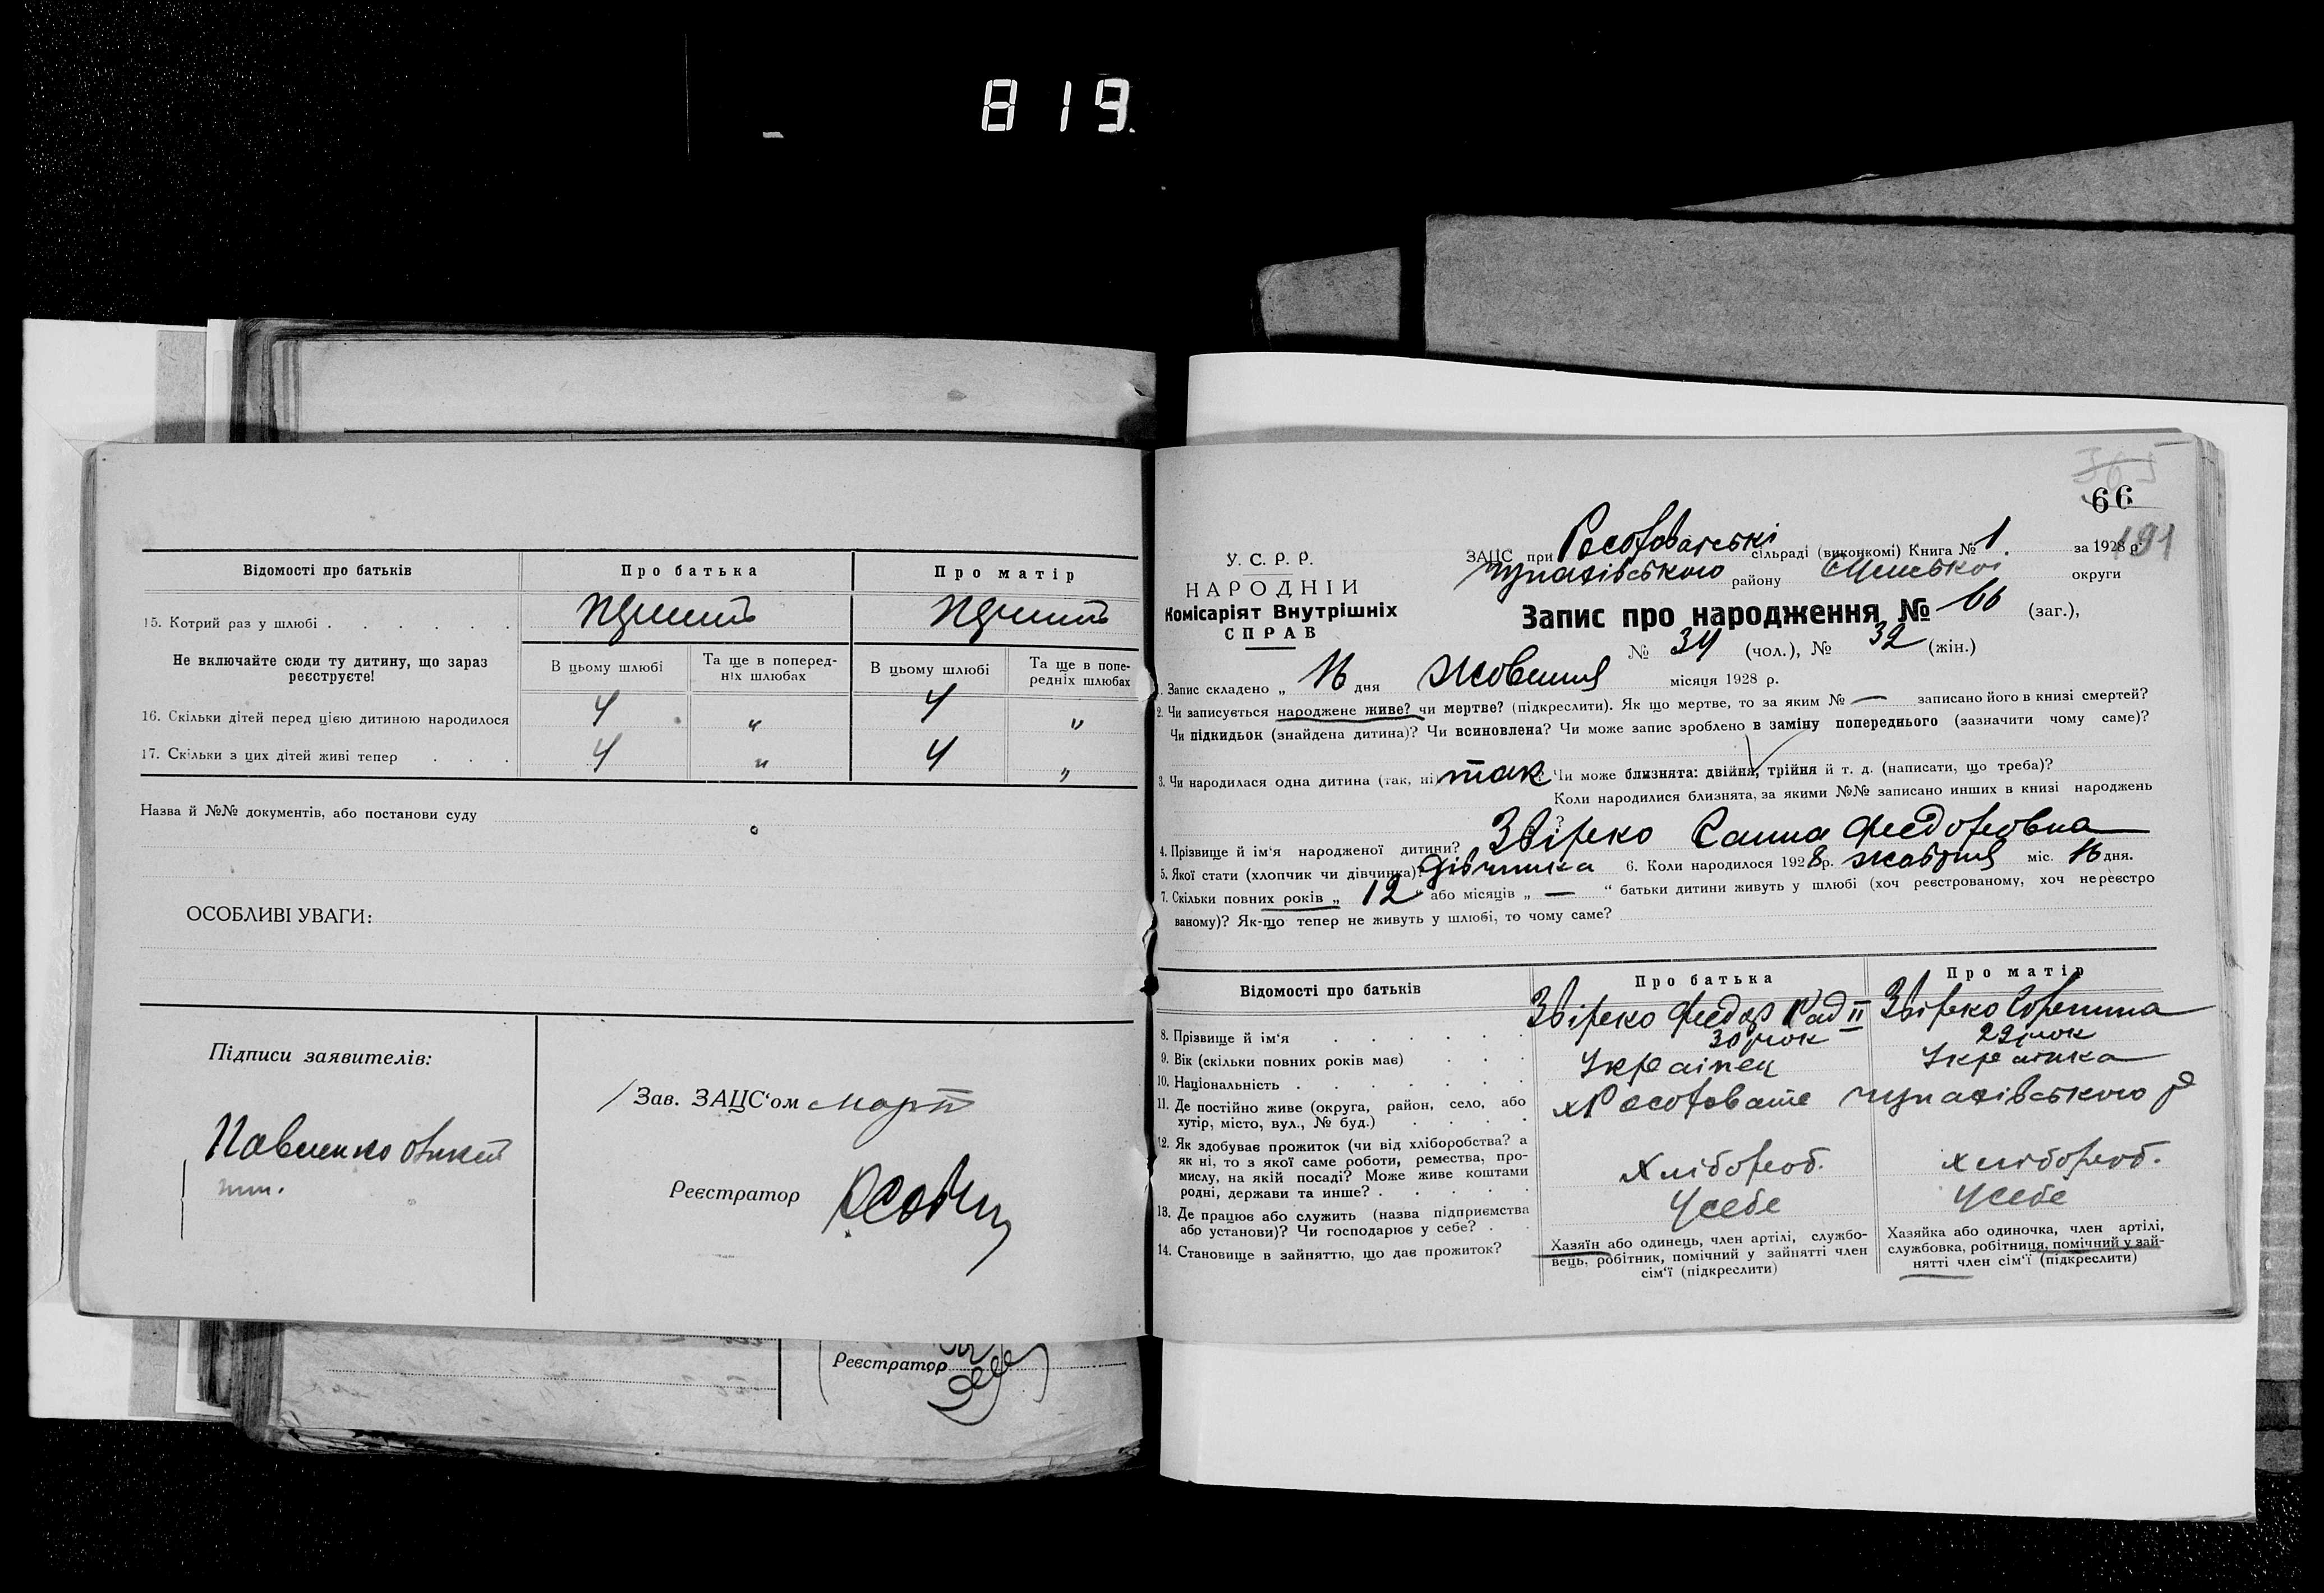 819.
Відомості про батьків
Про батька
Про матір
15. Котрий раз у шлюбі
Не включайте сюди ту дитину, що зараз
реєструєте!
В цьому шлюбі
Та ще в поперед-
ніх шлюбах
В цьому шлюбі
Та ще в попе-
редніх шлюбах
16. Скільки дітей перед цією дитиною народилося 4 " 4 "
17. Скільки з цих дітей живі тепер . . . 4 " 4 "
Назва й №№ документів, або постанови суду
ОСОБЛИВІ УВАГИ:
Підписи заявителів:
Зав. ЗАЦС'ом
Реєстратор
Реєстратор
66
У. С. Р. Р.
НАРОДНІЙ
Комісаріят Внутрішніх
СПРАВ
ЗАЦС при сільраді (виконкомі) Книга № 1. за 1928 р.
району округи
Запис про народження № 66 (заг.),
№ 34 (чол.), № 32 (жін.)
1. Запис складено „ 16 дня Жовтня місяця 1928 р.
2. Чи записується народжене живе? чи мертве? (підкреслити). Як що мертве, то за яким № — записано його в книзі смертей?
Чи підкидьок (знайдена дитина)? Чи всиновлена? Чи може запис зроблено в заміну попереднього (зазначити чому саме)?
3. Чи народилася одна дитина (так, ні) так Чи може близнята: двійня, трійня й т. д. (написати, що треба)?
Коли народилися близнята, за якими №№ записано инших в книзі народжень
?
4. Прізвище й ім'я народженої дитини? Звірко Ганна Федоровна
5. Якої стати (хлопчик чи дівчинка)? дівчинка 6. Коли народилося 1928 р. жовтня міс. 16 дня.
7. Скільки повних років „ 12 " або місяців „ — " батьки дитини живуть у шлюбі (хоч реєстрованому, хоч нереєстро
ваному)? Як-що тепер не живуть у шлюбі, то чому саме?
Відомості про батьків
Про батька
Про матір
8. Прізвище й ім'я Звірко Федор Звірко
9. Вік (скільки повних років має) 30 рок 29 рок
10. Національність Українец Українка
11. Де постійно живе (округа, район, село, або
хутір, місто, вул., № буд.)
12. Як здобуває прожиток (чи від хліборобства? а
як ні, то з якої саме роботи, ремества, про-
мислу, на якій посаді? Може живе коштами
родні, держави та инше? Хлібороб. хлібороб.
13. Де працює або служить (назва підприємства
або установи)? Чи господарює у себе? У себе У себе
14. Становище в зайняттю, що дає прожиток?
Хазяїн або одинець, член артілі, службо-
вець, робітник, помічний у зайнятті член
сім'ї (підкреслити)
Хазяйка або одиночка, член артілі,
службовка, робітниця, помічний у зай-
нятті член сім'ї (підкреслити)